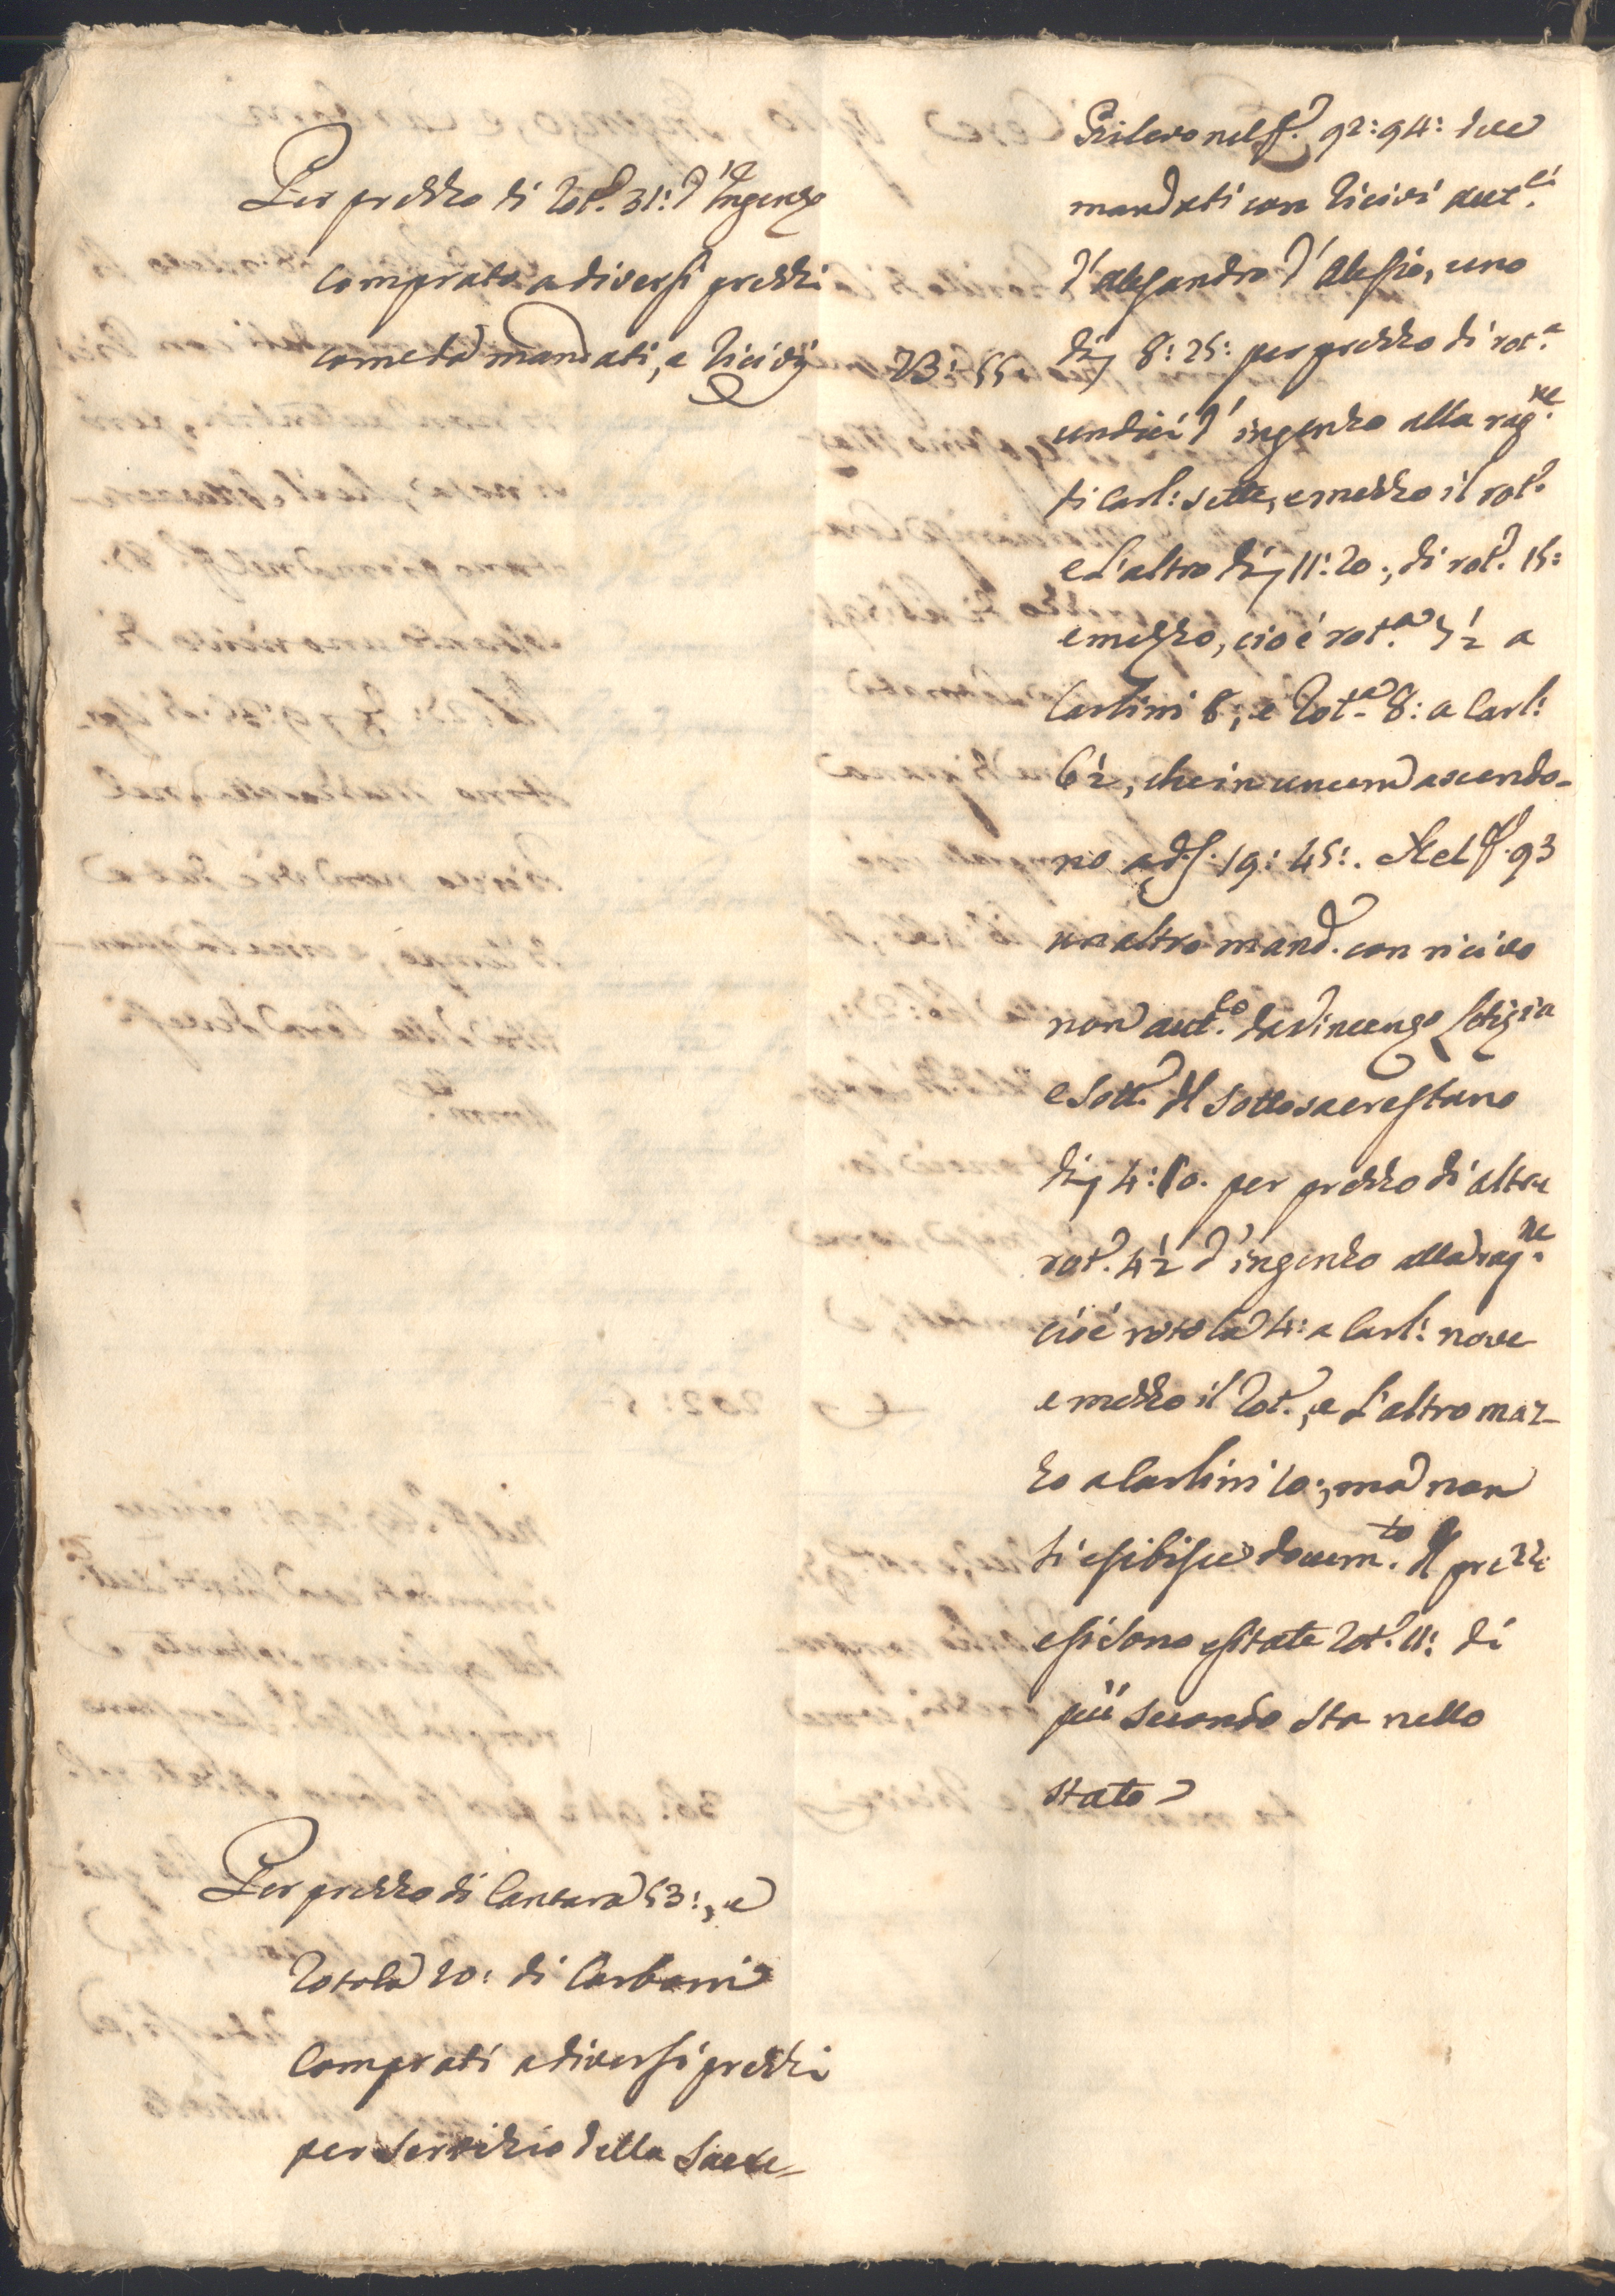 Per prezzo di Rot.ᵃ 31: d'Ingenzo
comprato a diversi prezzi
come da mandati, e ricivi
23: 55
Rilevo nel f.° 92: 94: due
mandati con ricivi aut.ci
d'Alesandro d'Alessio, uno
di 8: 25: per prezzo di rot.ᵃ
undici d'ingenzo alla rag.ne
di Carl: sette, e mezzo il rot.°
e l'altro di 11: 20:, di rot.ᵃ 15:
e mezzo, cioè rot.ᵃ 7½ a
Carlini 8:, e Rot.ᵃ 8: a Carl:
6½, che in unum ascendo-
no a d. 19: 45:. Nel f.° 93
un altro mand.° con ricivo
non aut.co da Vincenzo Letizia
e sott.° dl sottosacrestano
di 4:10. per prezzo di altre
rot.ᵃ 4½ d'ingenzo alla rag.ne
cioè rotola 4: a Carl: nove
e mezzo il Rot.°, e l'altro mez-
zo a Carlini 10:, ma non
si esibisce docum.to dl prezzo
e si sono esitate Rot.ᵃ 11: di
più secondo sta nello
stato
Per prezzo di Cantara 53:, e
Rotola 20: di Carboni
Comprati a diversi prezzi
per servizio della Sacre-